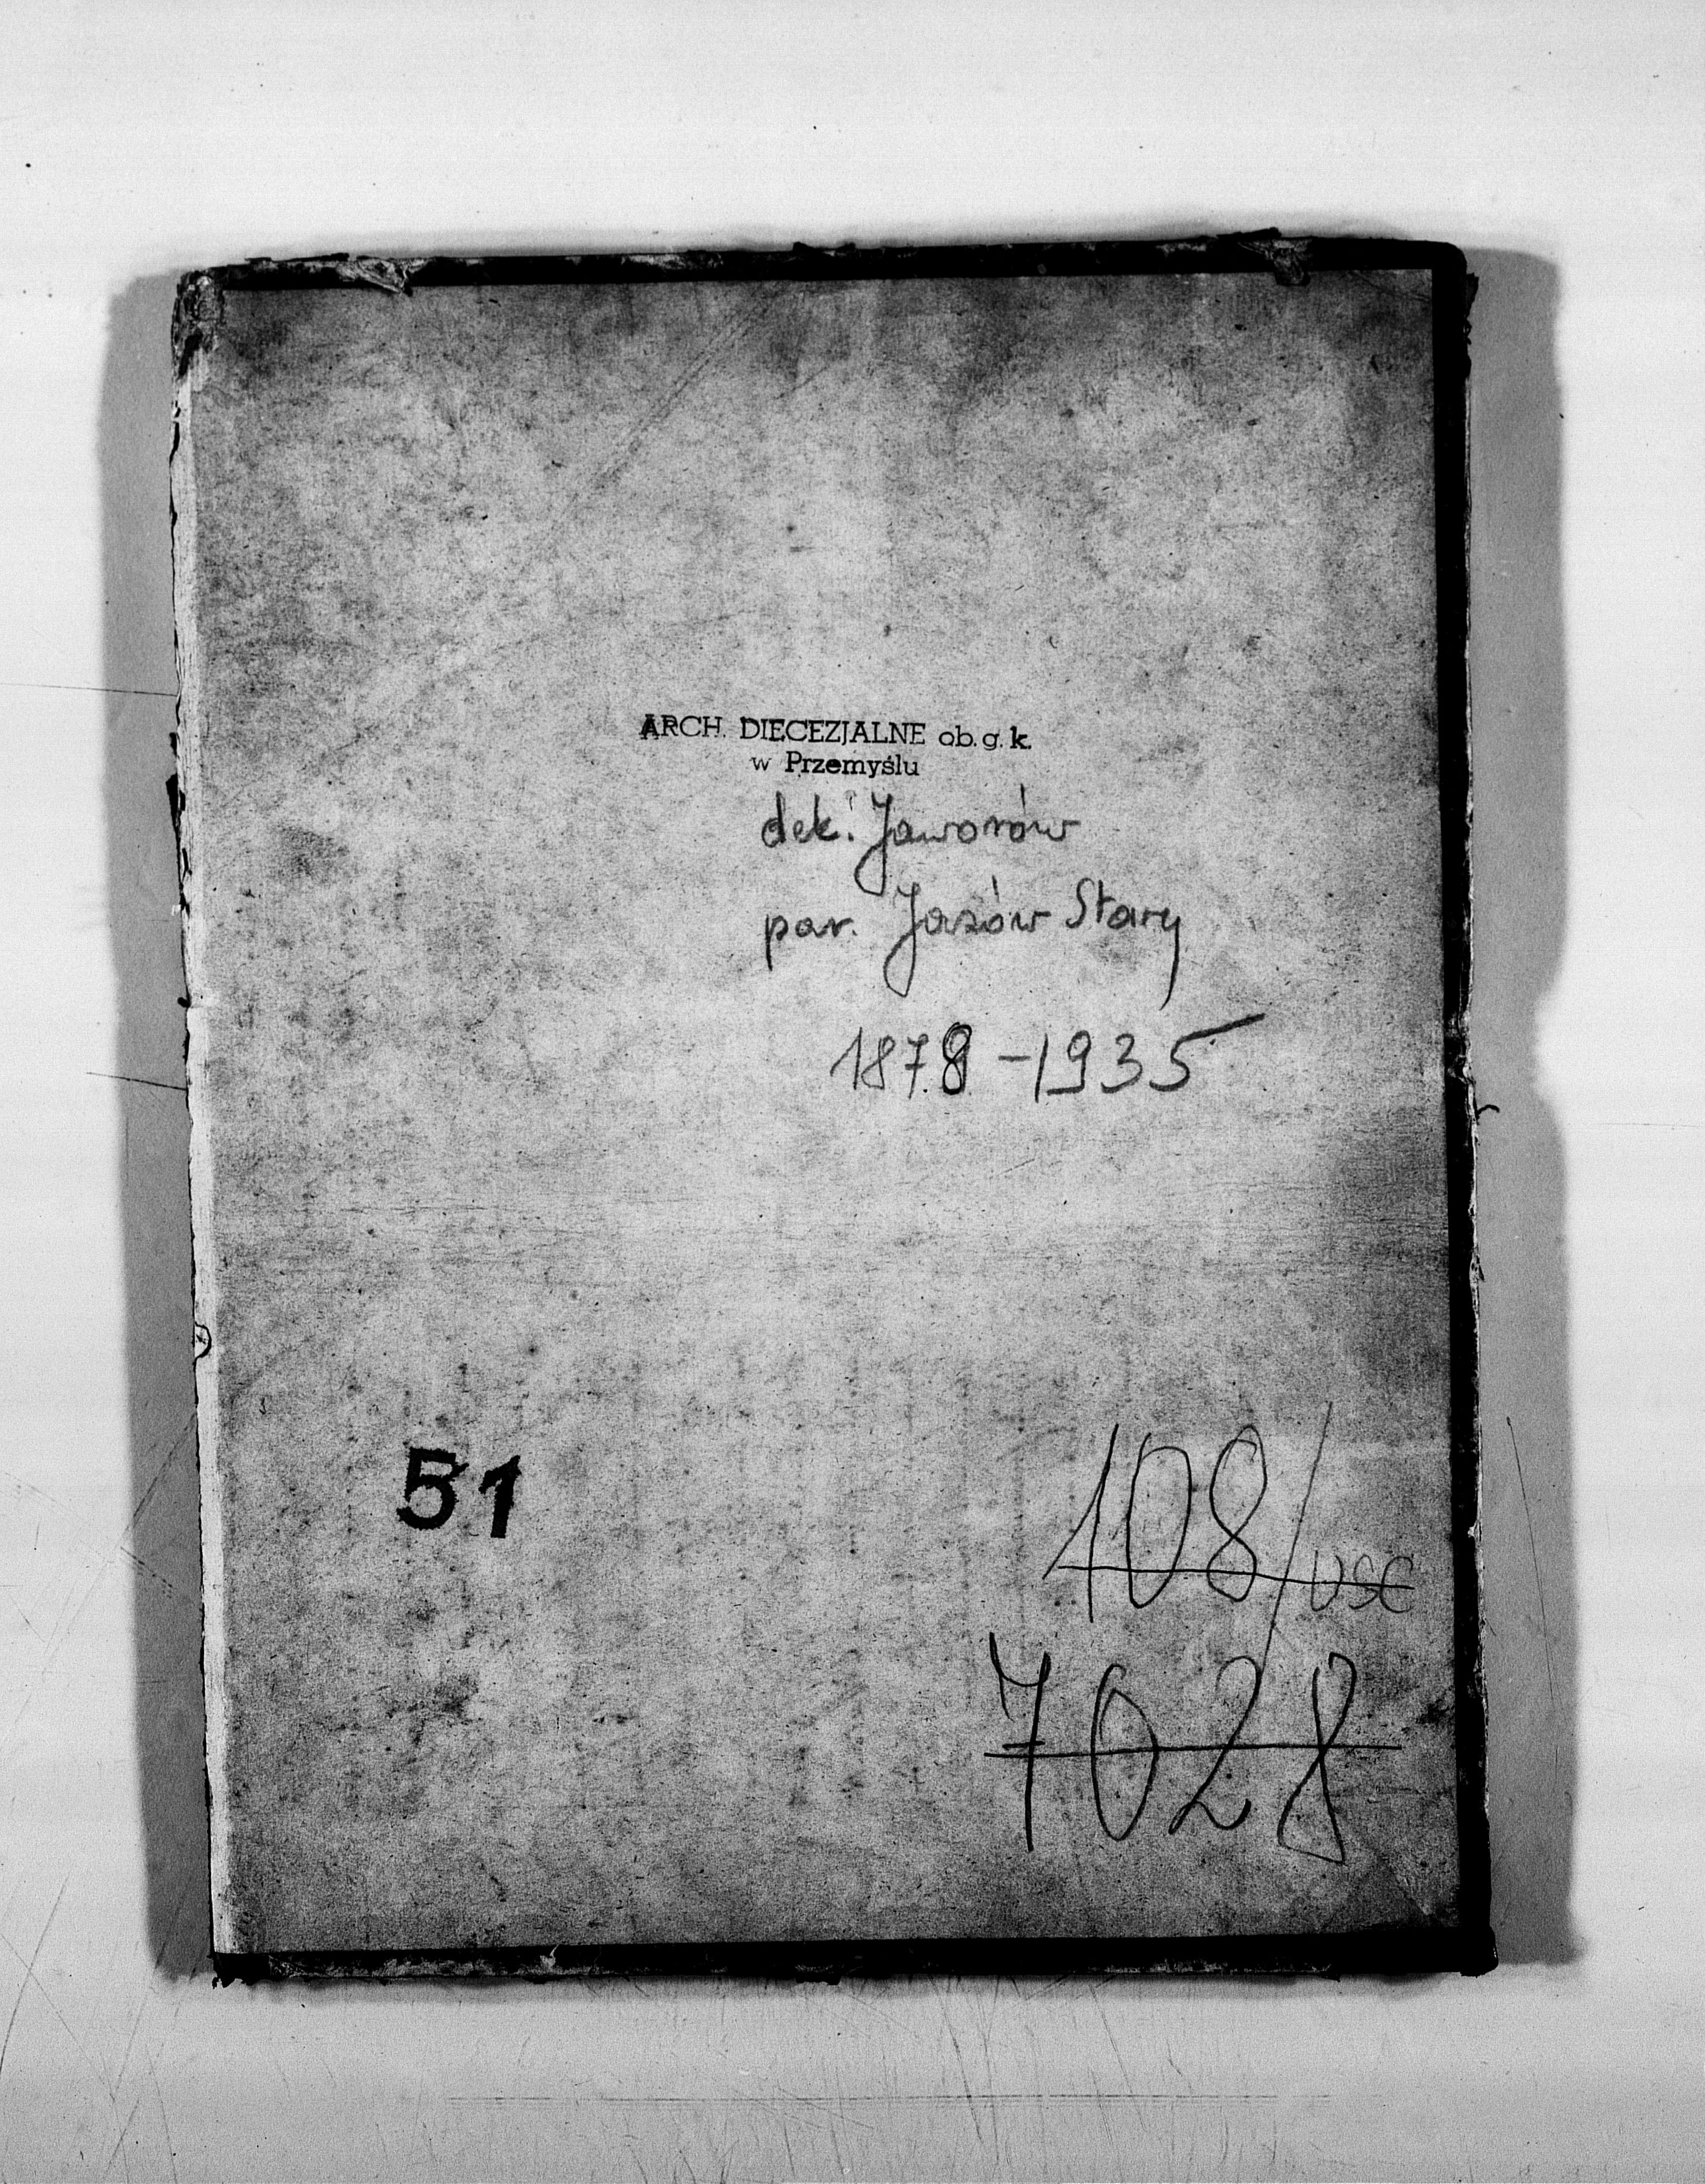 ARCH. DIECEZJALNE ob. g. k.
w Przemyślu
dek. Jaworów
par. Jazów Stary
1878-1935
51
108/USC
7028